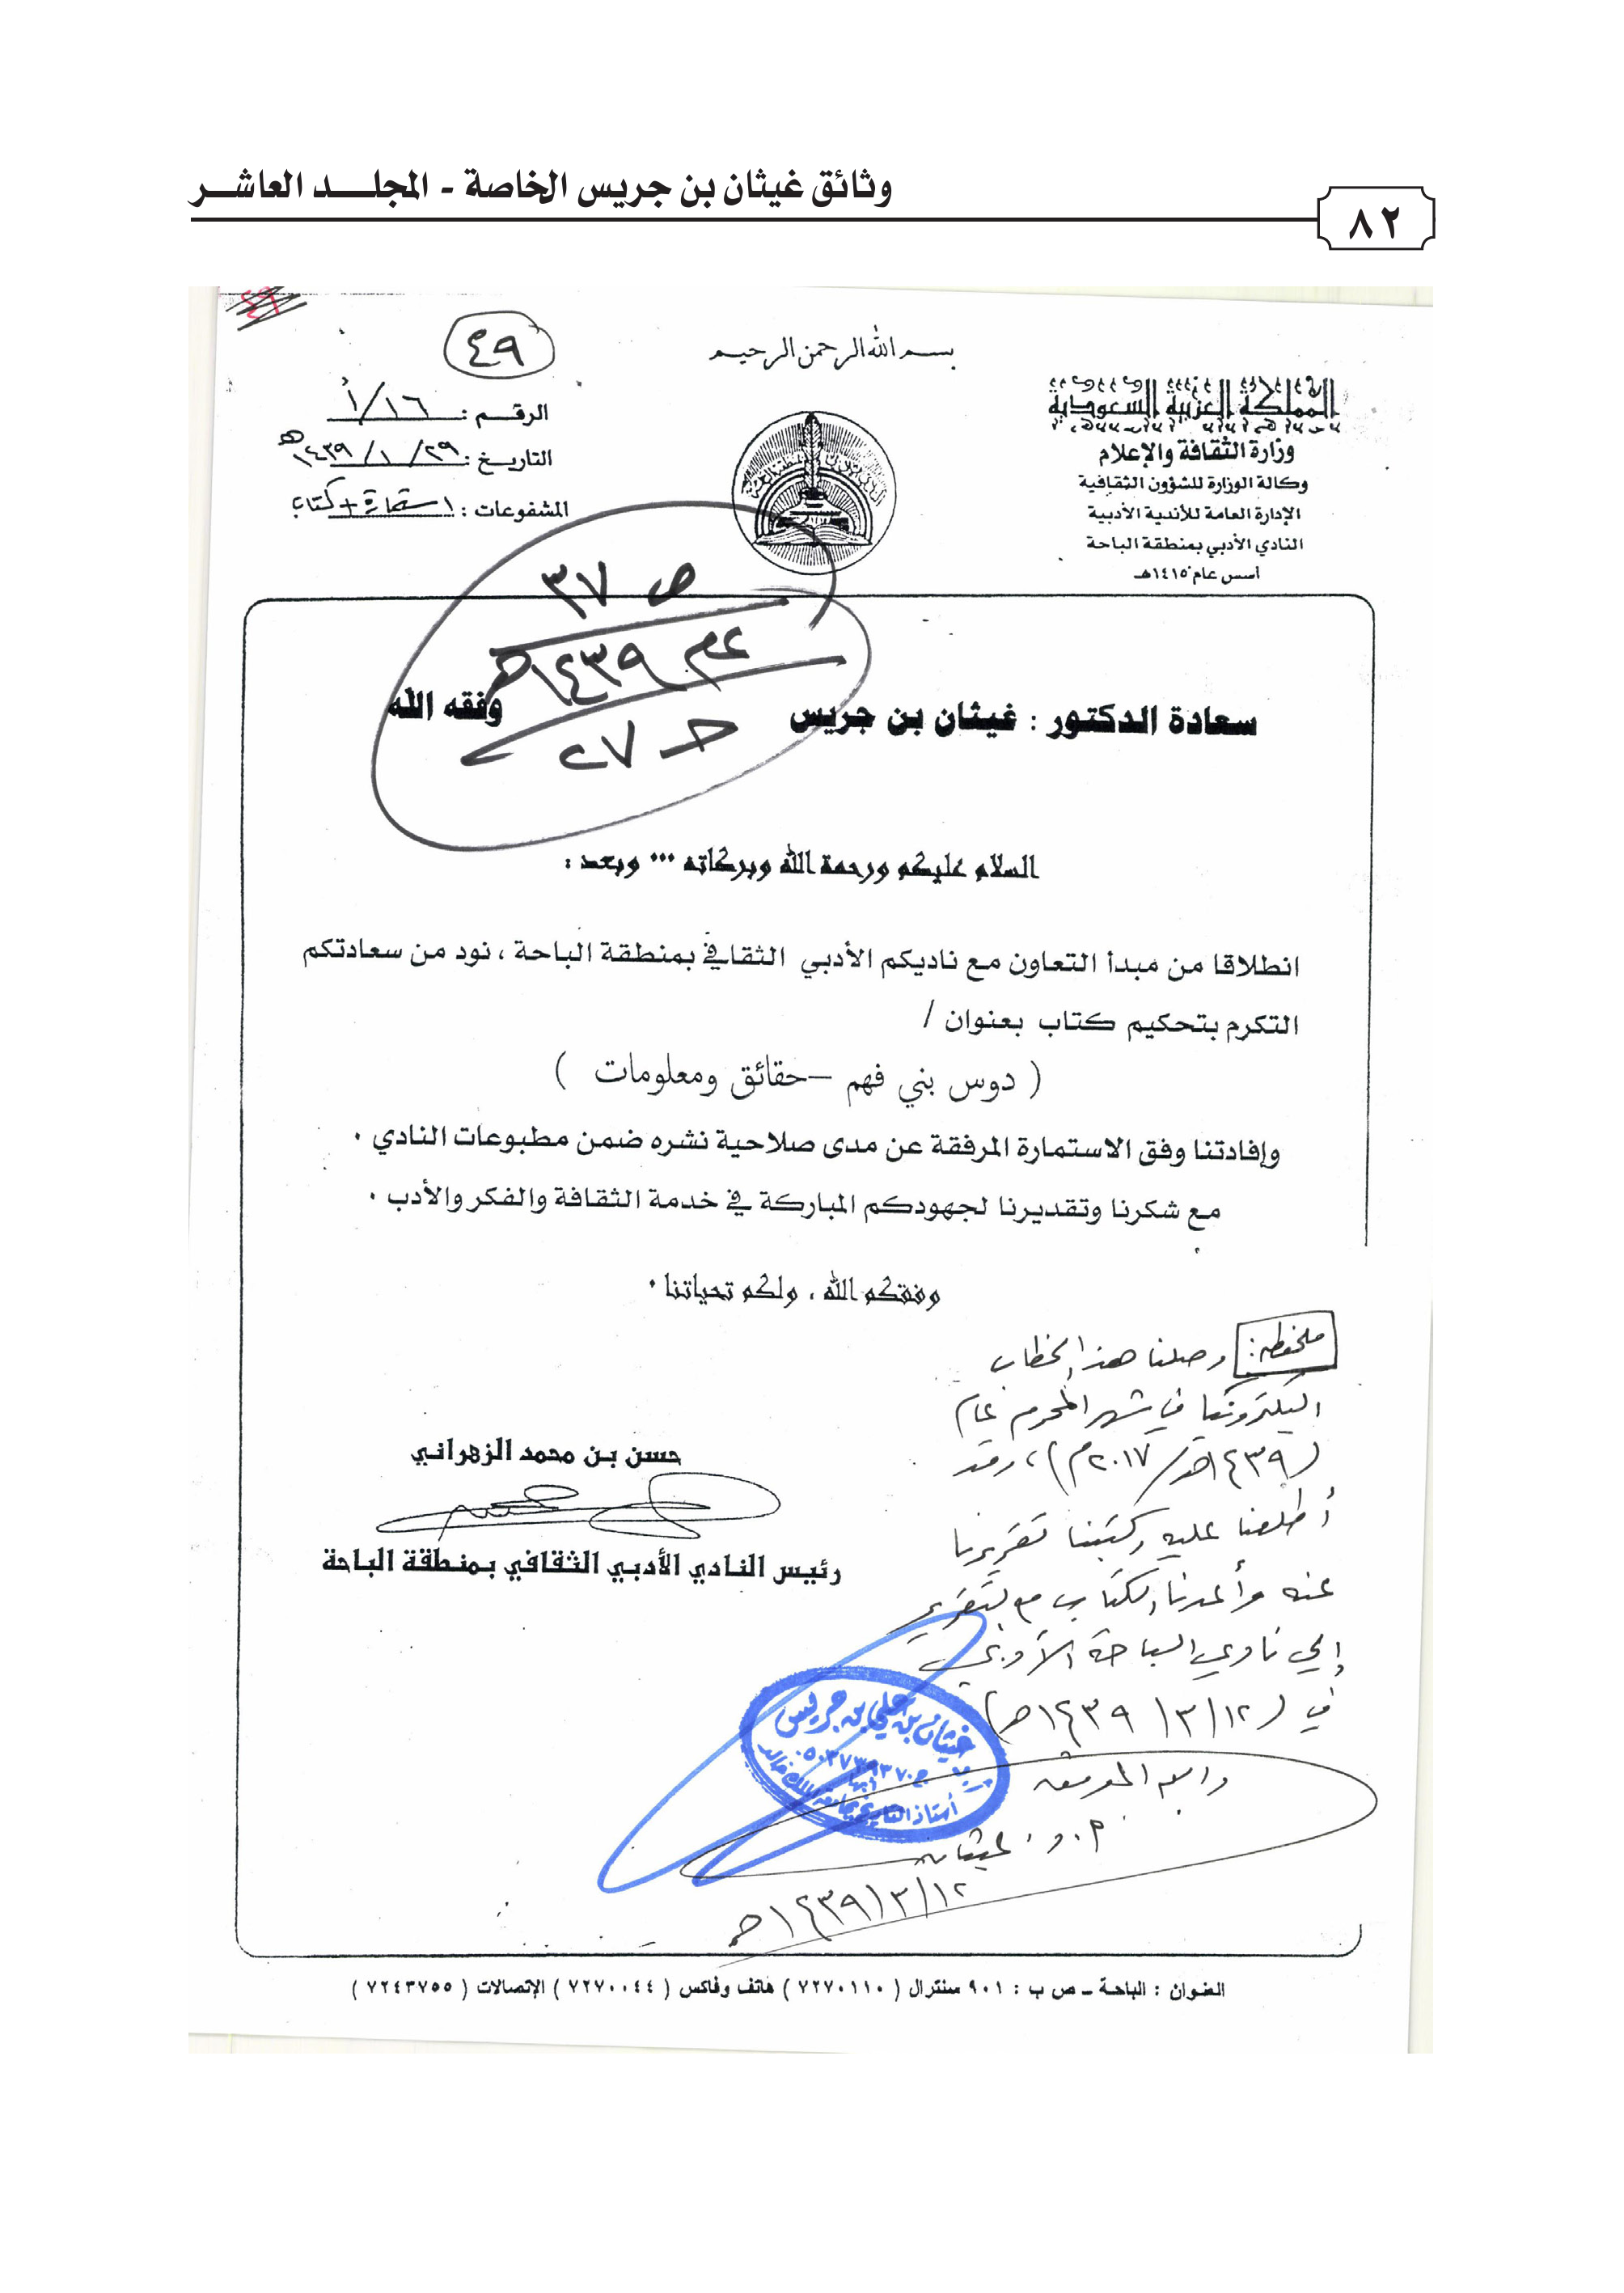 وثائق غيثان بن جريس الخاصة - المجلد العاشر
٨٢
٤٩
٤٩
بسم الله الرحمن الرحيم
المملكة العربية السعودية
وزارة الثقافة والإعلام
وكالة الوزارة للشؤون الثقافية
الإدارة العامة للأندية الأدبية
النادي الأدبي بمنطقة الباحة
أسس عام ١٤١٥هـ
الرقم : ١٦/أ
التاريخ : ٢٩/ ١/ ١٤٣٩هـ
المشفوعات : استمارة + كتاب
ص ٣٧
عام ١٤٣٩هـ
حـ ٢٧
سعادة الدكتور : غيثان بن جريس وفقه الله
السلام عليكم ورحمة الله وبركاته ... وبعد :
انطلاقا من مبدأ التعاون مع ناديكم الأدبي الثقافي بمنطقة الباحة ، نود من سعادتكم
التكرم بتحكيم كتاب بعنوان /
( دوس بني فهم –حقائق ومعلومات )
وإفادتنا وفق الاستمارة المرفقة عن مدى صلاحية نشره ضمن مطبوعات النادي .
مع شكرنا وتقديرنا لجهودكم المباركة في خدمة الثقافة والفكر والأدب .
وفقكم الله ، ولكم تحياتنا .
حسن بن محمد الزهراني
رئيس النادي الأدبي الثقافي بمنطقة الباحة
ملحظه : وصلنا هذا الخطاب
اليكترونيا في شهر المحرم عام
(١٤٣٩هـ/٢٠١٧م)، وقد
أطلعنا عليه وكتبنا تقريرنا
عنه وأعدنا الكتاب مع التقرير
إلى نادي الباحة الأدبي
في (١٢/ ٣/ ١٤٣٩هـ)
والله الموفق
أ. د. غيثان
١٢/ ٣/ ١٤٣٩هـ
غيثان بن علي بن جريس
أستاذ التاريخ بجامعة الملك خالد
أبها
العنوان : الباحة – ص ب : ٩٠١ سنترال ( ٧٢٧٠١١٠ ) هاتف وفاكس ( ٧٢٧٠٠٤٤ ) الإتصالات ( ٧٢٤٣٧٥٥ )